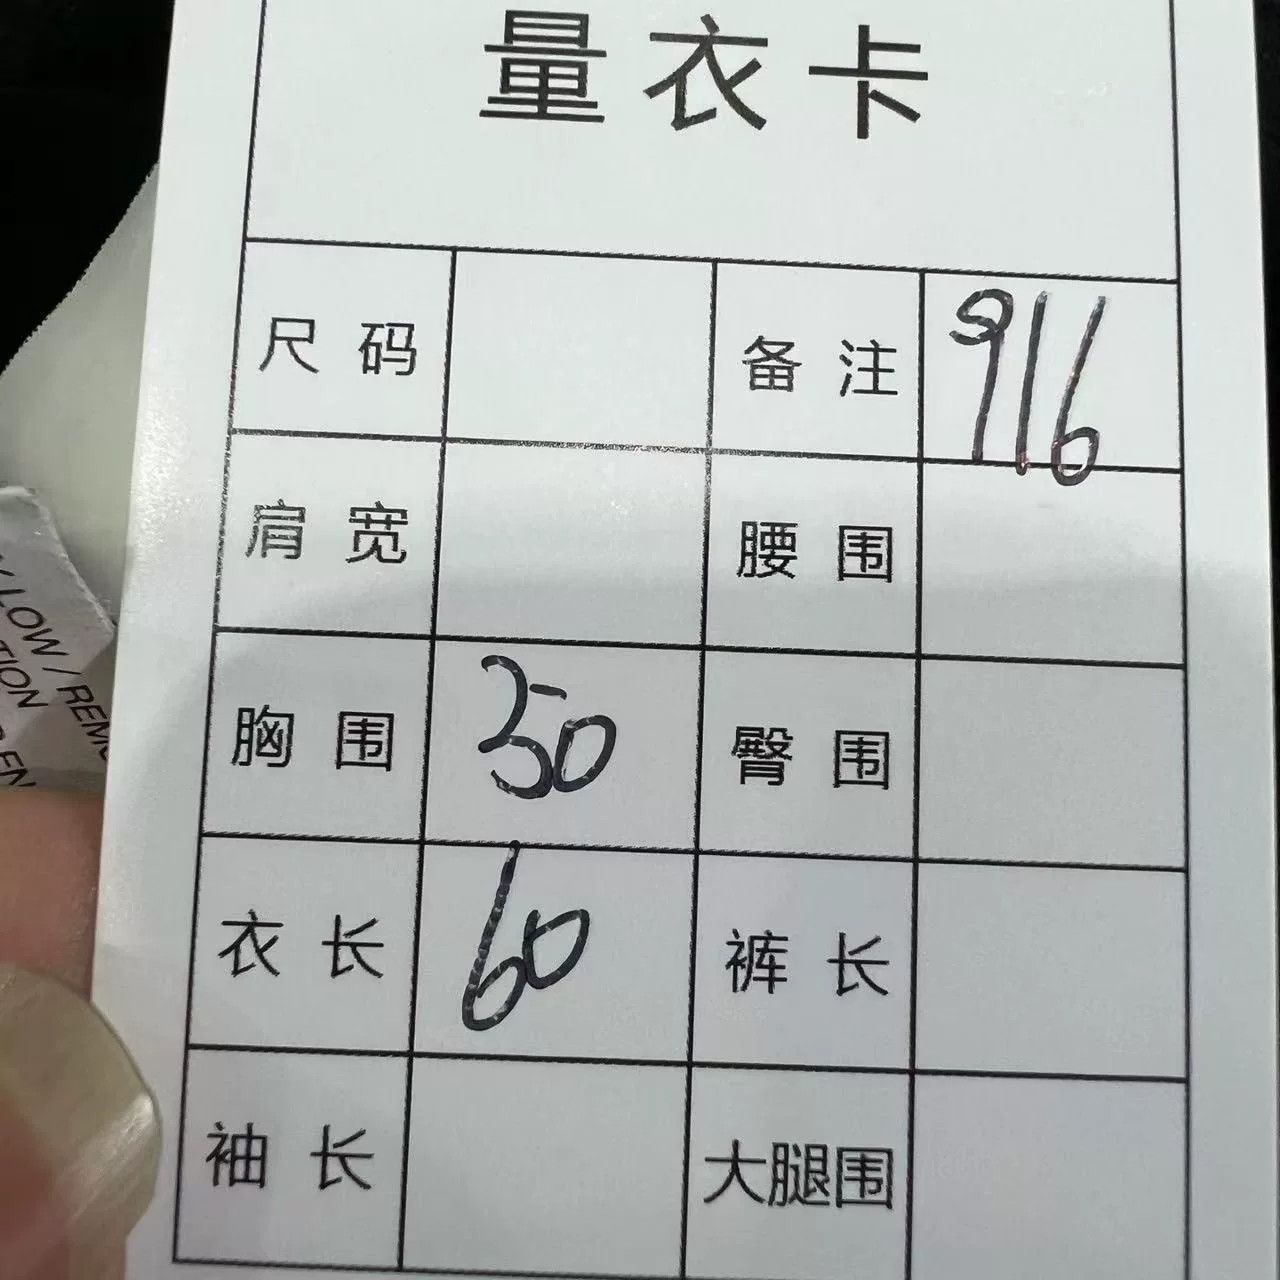 量衣卡
尺码 备注 916
肩宽 腰围
胸围 50 臀围
衣长 60 裤长
袖长 大腿围
LOW / REM
TION